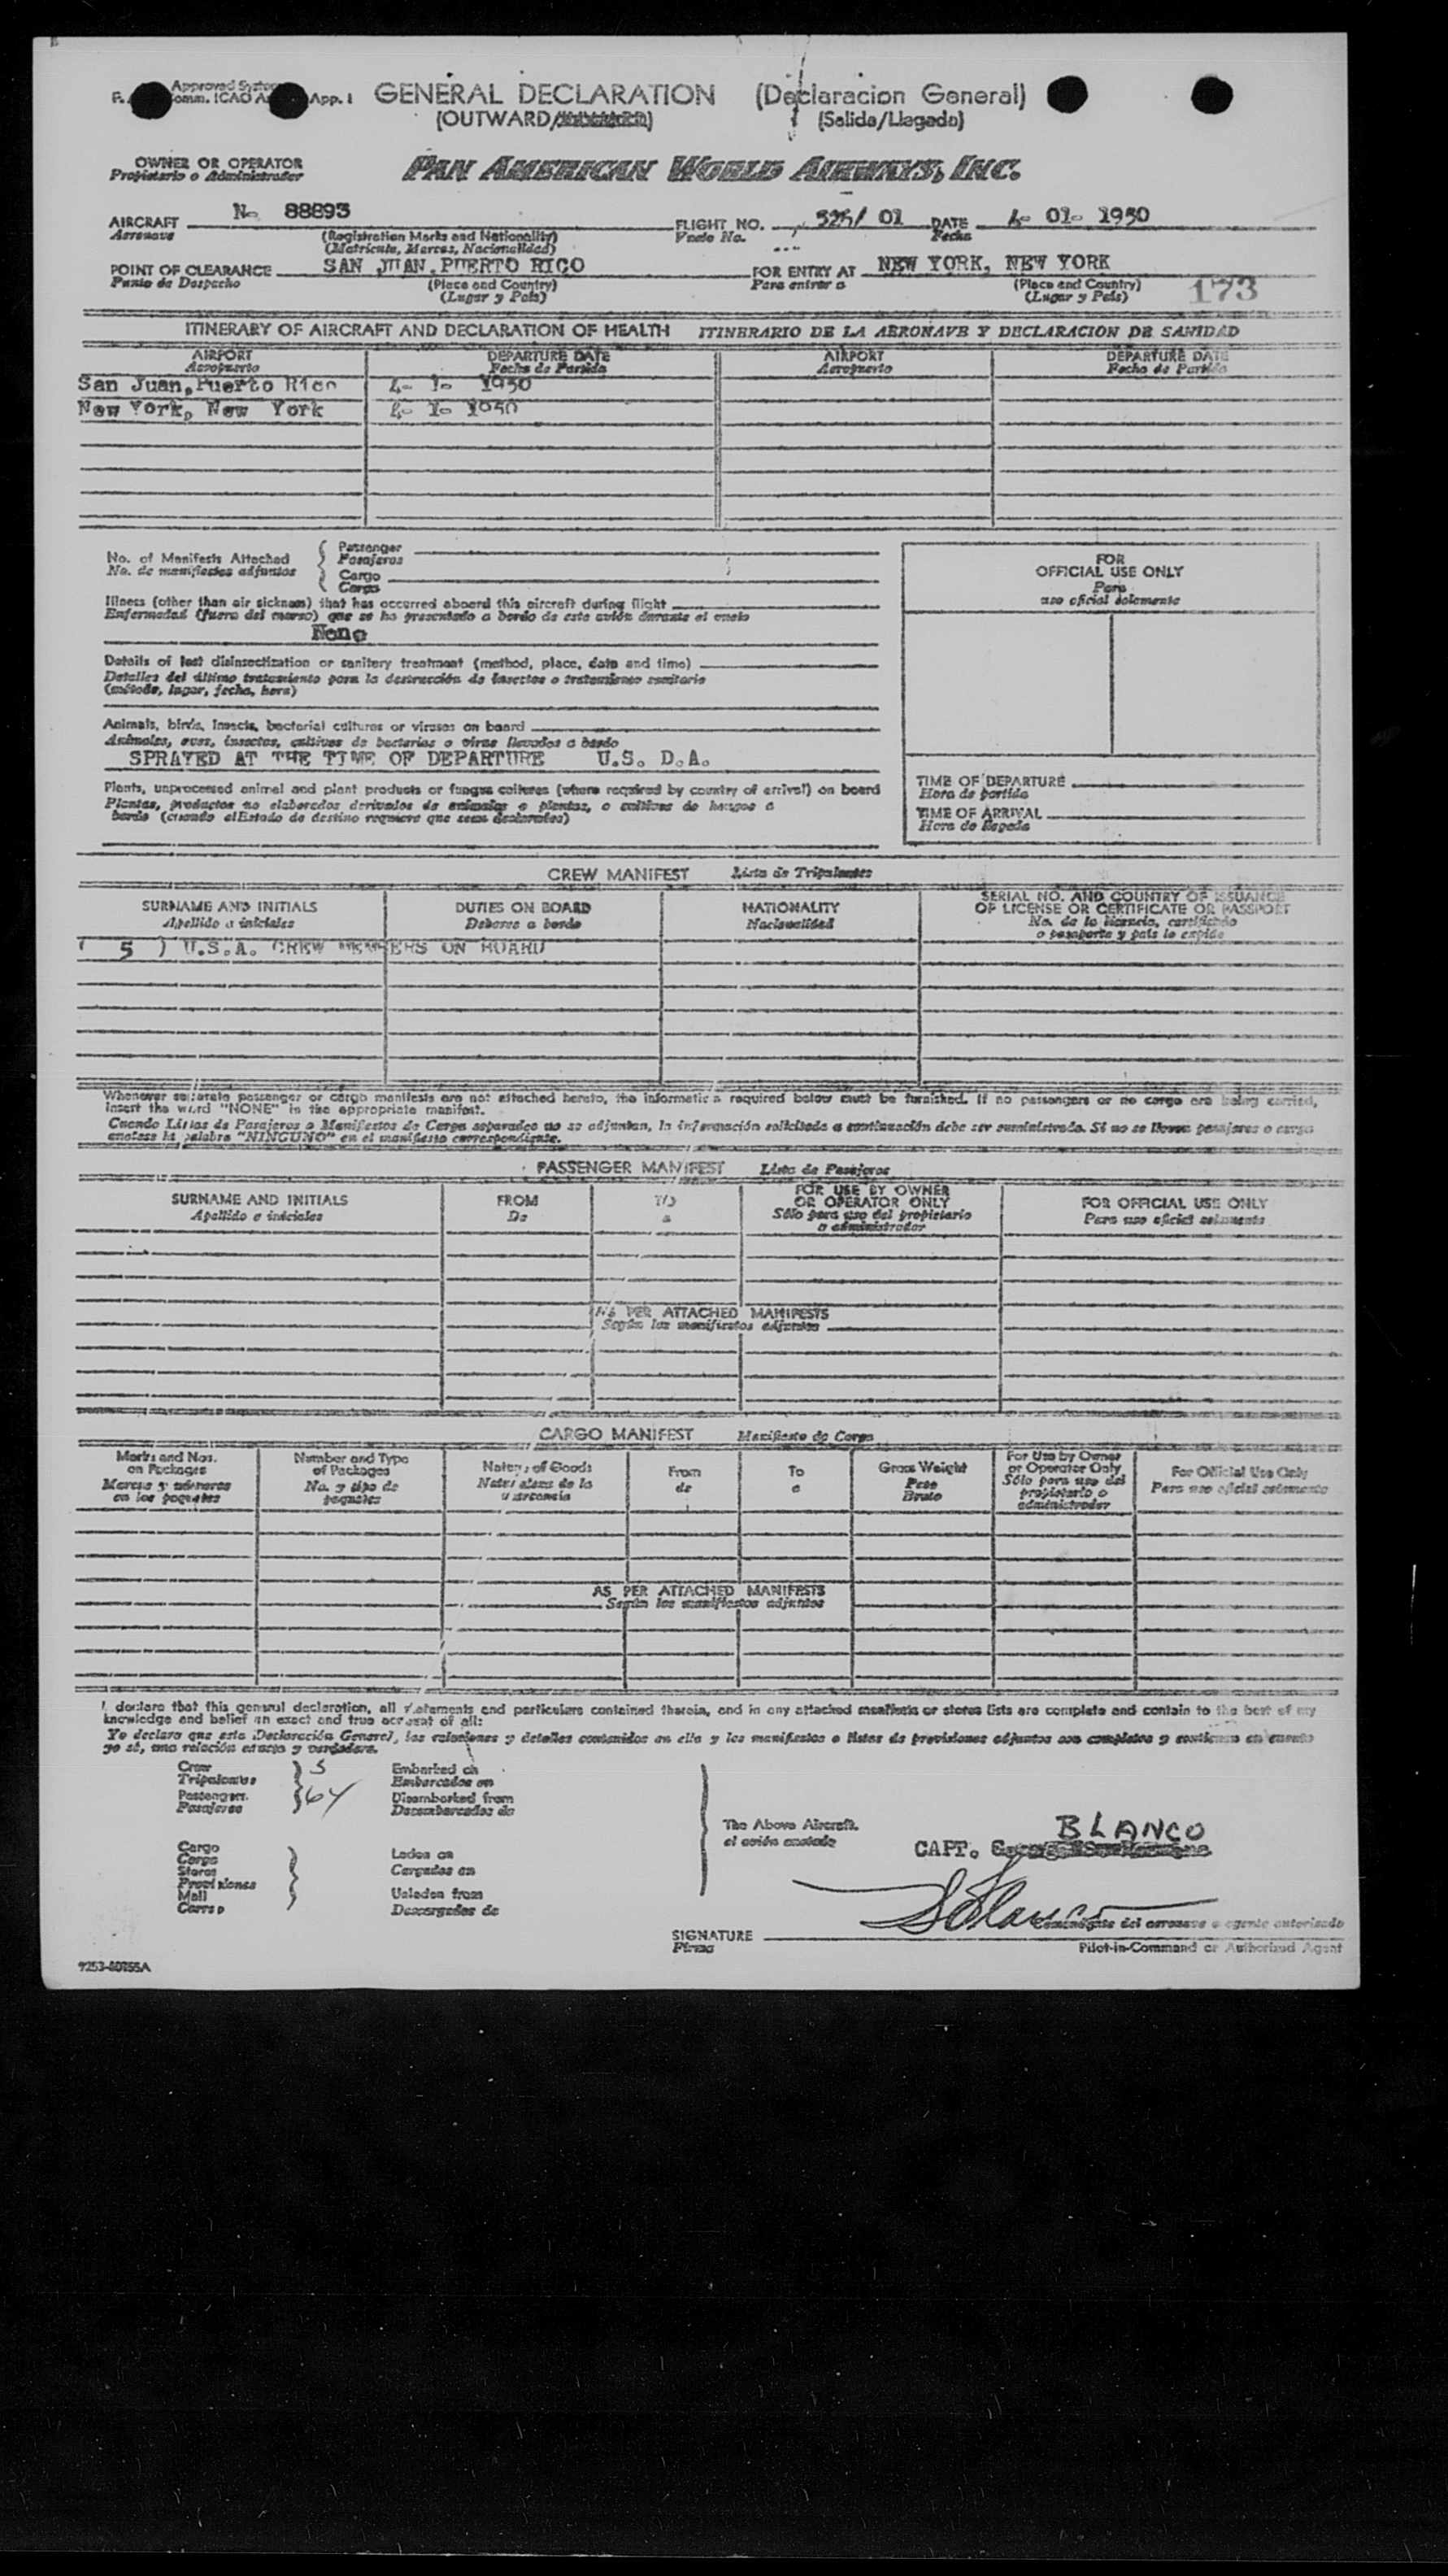 Approved System
Comm. ICAO App. 1
GENERAL DECLARATION (Declaracion General)
(OUTWARD/ (Salida/Llegada)
OWNER OR OPERATOR
Propietario o Administrador
PAN AMERICAN WORLD AIRWAYS, INC.
AIRCRAFT N- 88893 FLIGHT NO. 525/ 01 DATE 4- 01- 1950
Aeronave (Registration Marks and Nationality) Vuelo No. Fecha
(Matricula, Marcas, Nacionalidad)
POINT OF CLEARANCE SAN JUAN, PUERTO RICO FOR ENTRY AT NEW YORK, NEW YORK
Punto de Despacho (Place and Country) Para entrar a (Place and Country) 173
(Lugar y País) (Lugar y País)
ITINERARY OF AIRCRAFT AND DECLARATION OF HEALTH ITINERARIO DE LA AERONAVE Y DECLARACION DE SANIDAD
AIRPORT DEPARTURE DATE AIRPORT DEPARTURE DATE
Aeropuerto Fecha de Partida Aeropuerto Fecha de Partida
San Juan, Puerto Rico 4- 1- 1950
New York, New York 4- 1- 1950
No. of Manifests Attached Passenger
No. de manifiestos adjuntos Pasajeros
Cargo
Carga
FOR
OFFICIAL USE ONLY
Para
uso oficial solamente
Illness (other than air sickness) that has occurred aboard this aircraft during flight
Enfermedad (fuera del mareo) que se ha presentado a bordo de este avión durante el vuelo
None
Details of last disinsectization or sanitary treatment (method, place, date and time)
Detalles del último tratamiento para la destrucción de insectos o tratamiento sanitario
(método, lugar, fecha, hora)
Animals, birds, insects, bacterial cultures or viruses on board
Animales, aves, insectos, cultivos de bacterias o virus llevados a bordo
SPRAYED AT THE TIME OF DEPARTURE U.S. D.A.
Plants, unprocessed animal and plant products or fungus cultures (where required by country of arrival) on board
Plantas, productos no elaborados derivados de animales o plantas, o cultivos de hongos a
bordo (cuando el Estado de destino requiere que sean declarados)
TIME OF DEPARTURE
Hora de partida
TIME OF ARRIVAL
Hora de llegada
CREW MANIFEST Lista de Tripulantes
SURNAME AND INITIALS DUTIES ON BOARD NATIONALITY SERIAL NO. AND COUNTRY OF ISSUANCE
OF LICENSE OR CERTIFICATE OR PASSPORT
Apellido e iniciales Deberes a bordo Nacionalidad No. de la licencia, certificado
o pasaporte y país lo expide
( 5 ) U.S.A. CREW MEMBERS ON BOARD
Whenever separate passenger or cargo manifests are not attached hereto, the information required below must be furnished. If no passengers or no cargo are being carried,
insert the word "NONE" in the appropriate manifest.
Cuando Listas de Pasajeros o Manifiestos de Carga separados no se adjuntan, la información solicitada a continuación debe ser suministrada. Si no se llevan pasajeros o carga
anotese la palabra "NINGUNO" en el manifiesto correspondiente.
PASSENGER MANIFEST Lista de Pasajeros
SURNAME AND INITIALS FROM TO FOR USE BY OWNER
OR OPERATOR ONLY FOR OFFICIAL USE ONLY
Apellido e iniciales De a Sólo para uso del propietario
o administrador Para uso oficial solamente
AS PER ATTACHED MANIFESTS
Según los manifiestos adjuntos
CARGO MANIFEST Manifiesto de Carga
Marks and Nos.
on Packages
Marcas y números
en los paquetes
Number and Type
of Packages
No. y tipo de
paquetes
Nature of Goods
Naturaleza de la
Mercancia
From
de
To
a
Gross Weight
Peso
Bruto
For Use by Owner
or Operator Only
Sólo para uso del
propietario o
administrador
For Official Use Only
Para uso oficial solamente
AS PER ATTACHED MANIFESTS
Según los manifiestos adjuntos
I declare that this general declaration, all statements and particulars contained therein, and in any attached manifests or stores lists are complete and contain to the best of my
knowledge and belief an exact and true account of all:
Yo declaro que esta Declaración General, las relaciones y detalles contenidos en ella y los manifiestos o listas de provisiones adjuntos son completos y contienen en cuanto
yo sé, una relación exacta y verdadera.
Crew 5 Embarked on
Tripulantes Embarcados en
Passengers 64 Disembarked from
Pasajeros Desembarcados de
The Above Aircraft.
el avión anotado
BLANCO
CAPT.
Cargo
Carga
Stores
Provisiones
Mail
Correo
Laden on
Cargados en
Unladen from
Descargados de
SBlanco
Comandante del aeronave o agente autorizado
SIGNATURE
Firma
Pilot-in-Command or Authorized Agent
9253-40755A